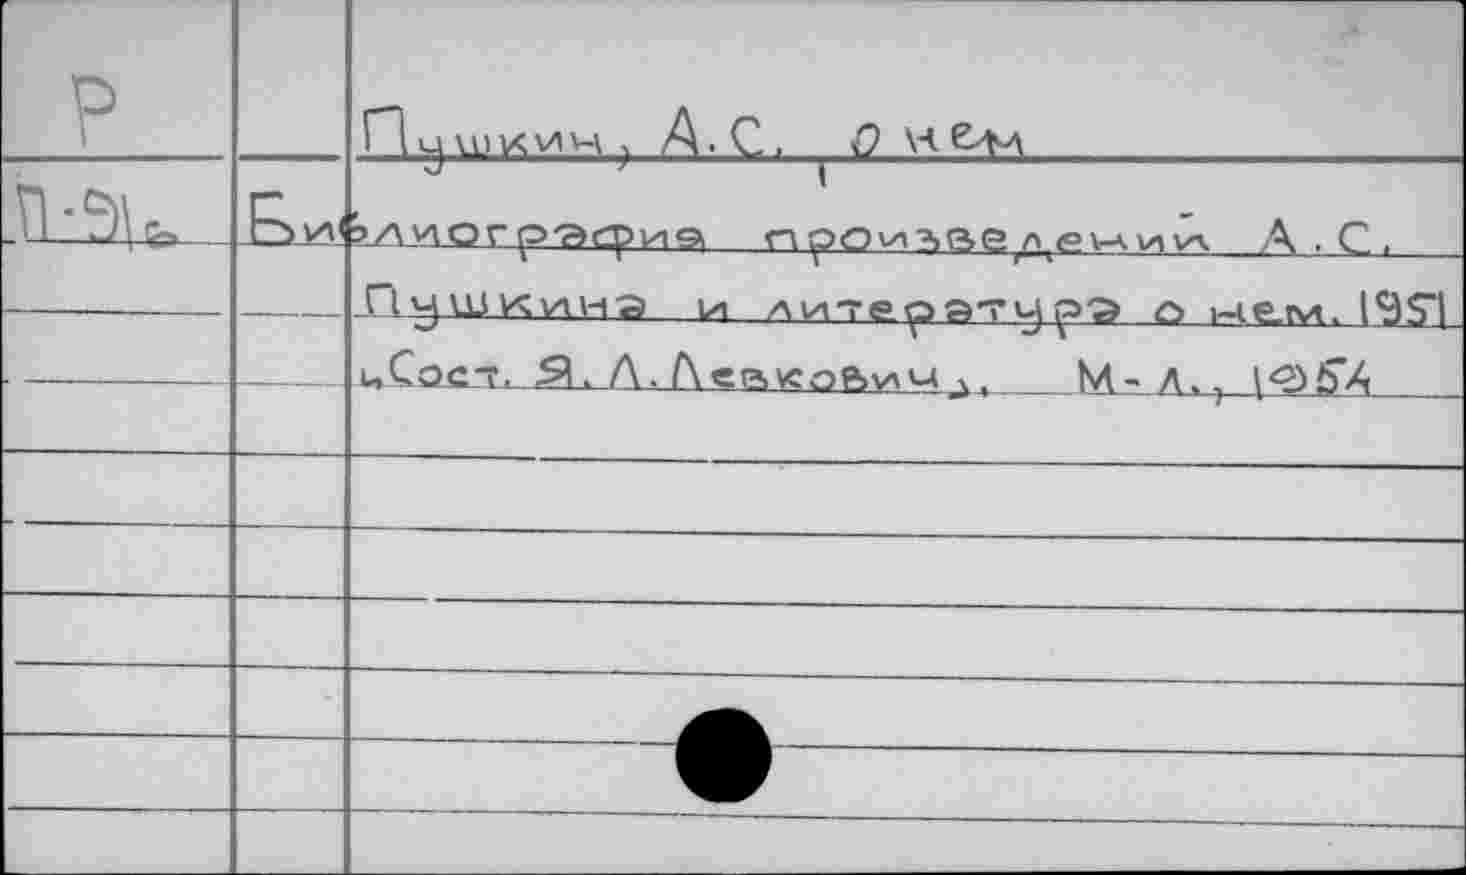 Р
Пушкин, А.С. о нем
П-91
Библиография произведений А.С.
Пушкина и литература о нем. 1951
Сост. Я.Л. Левкович, М-Л., 1954